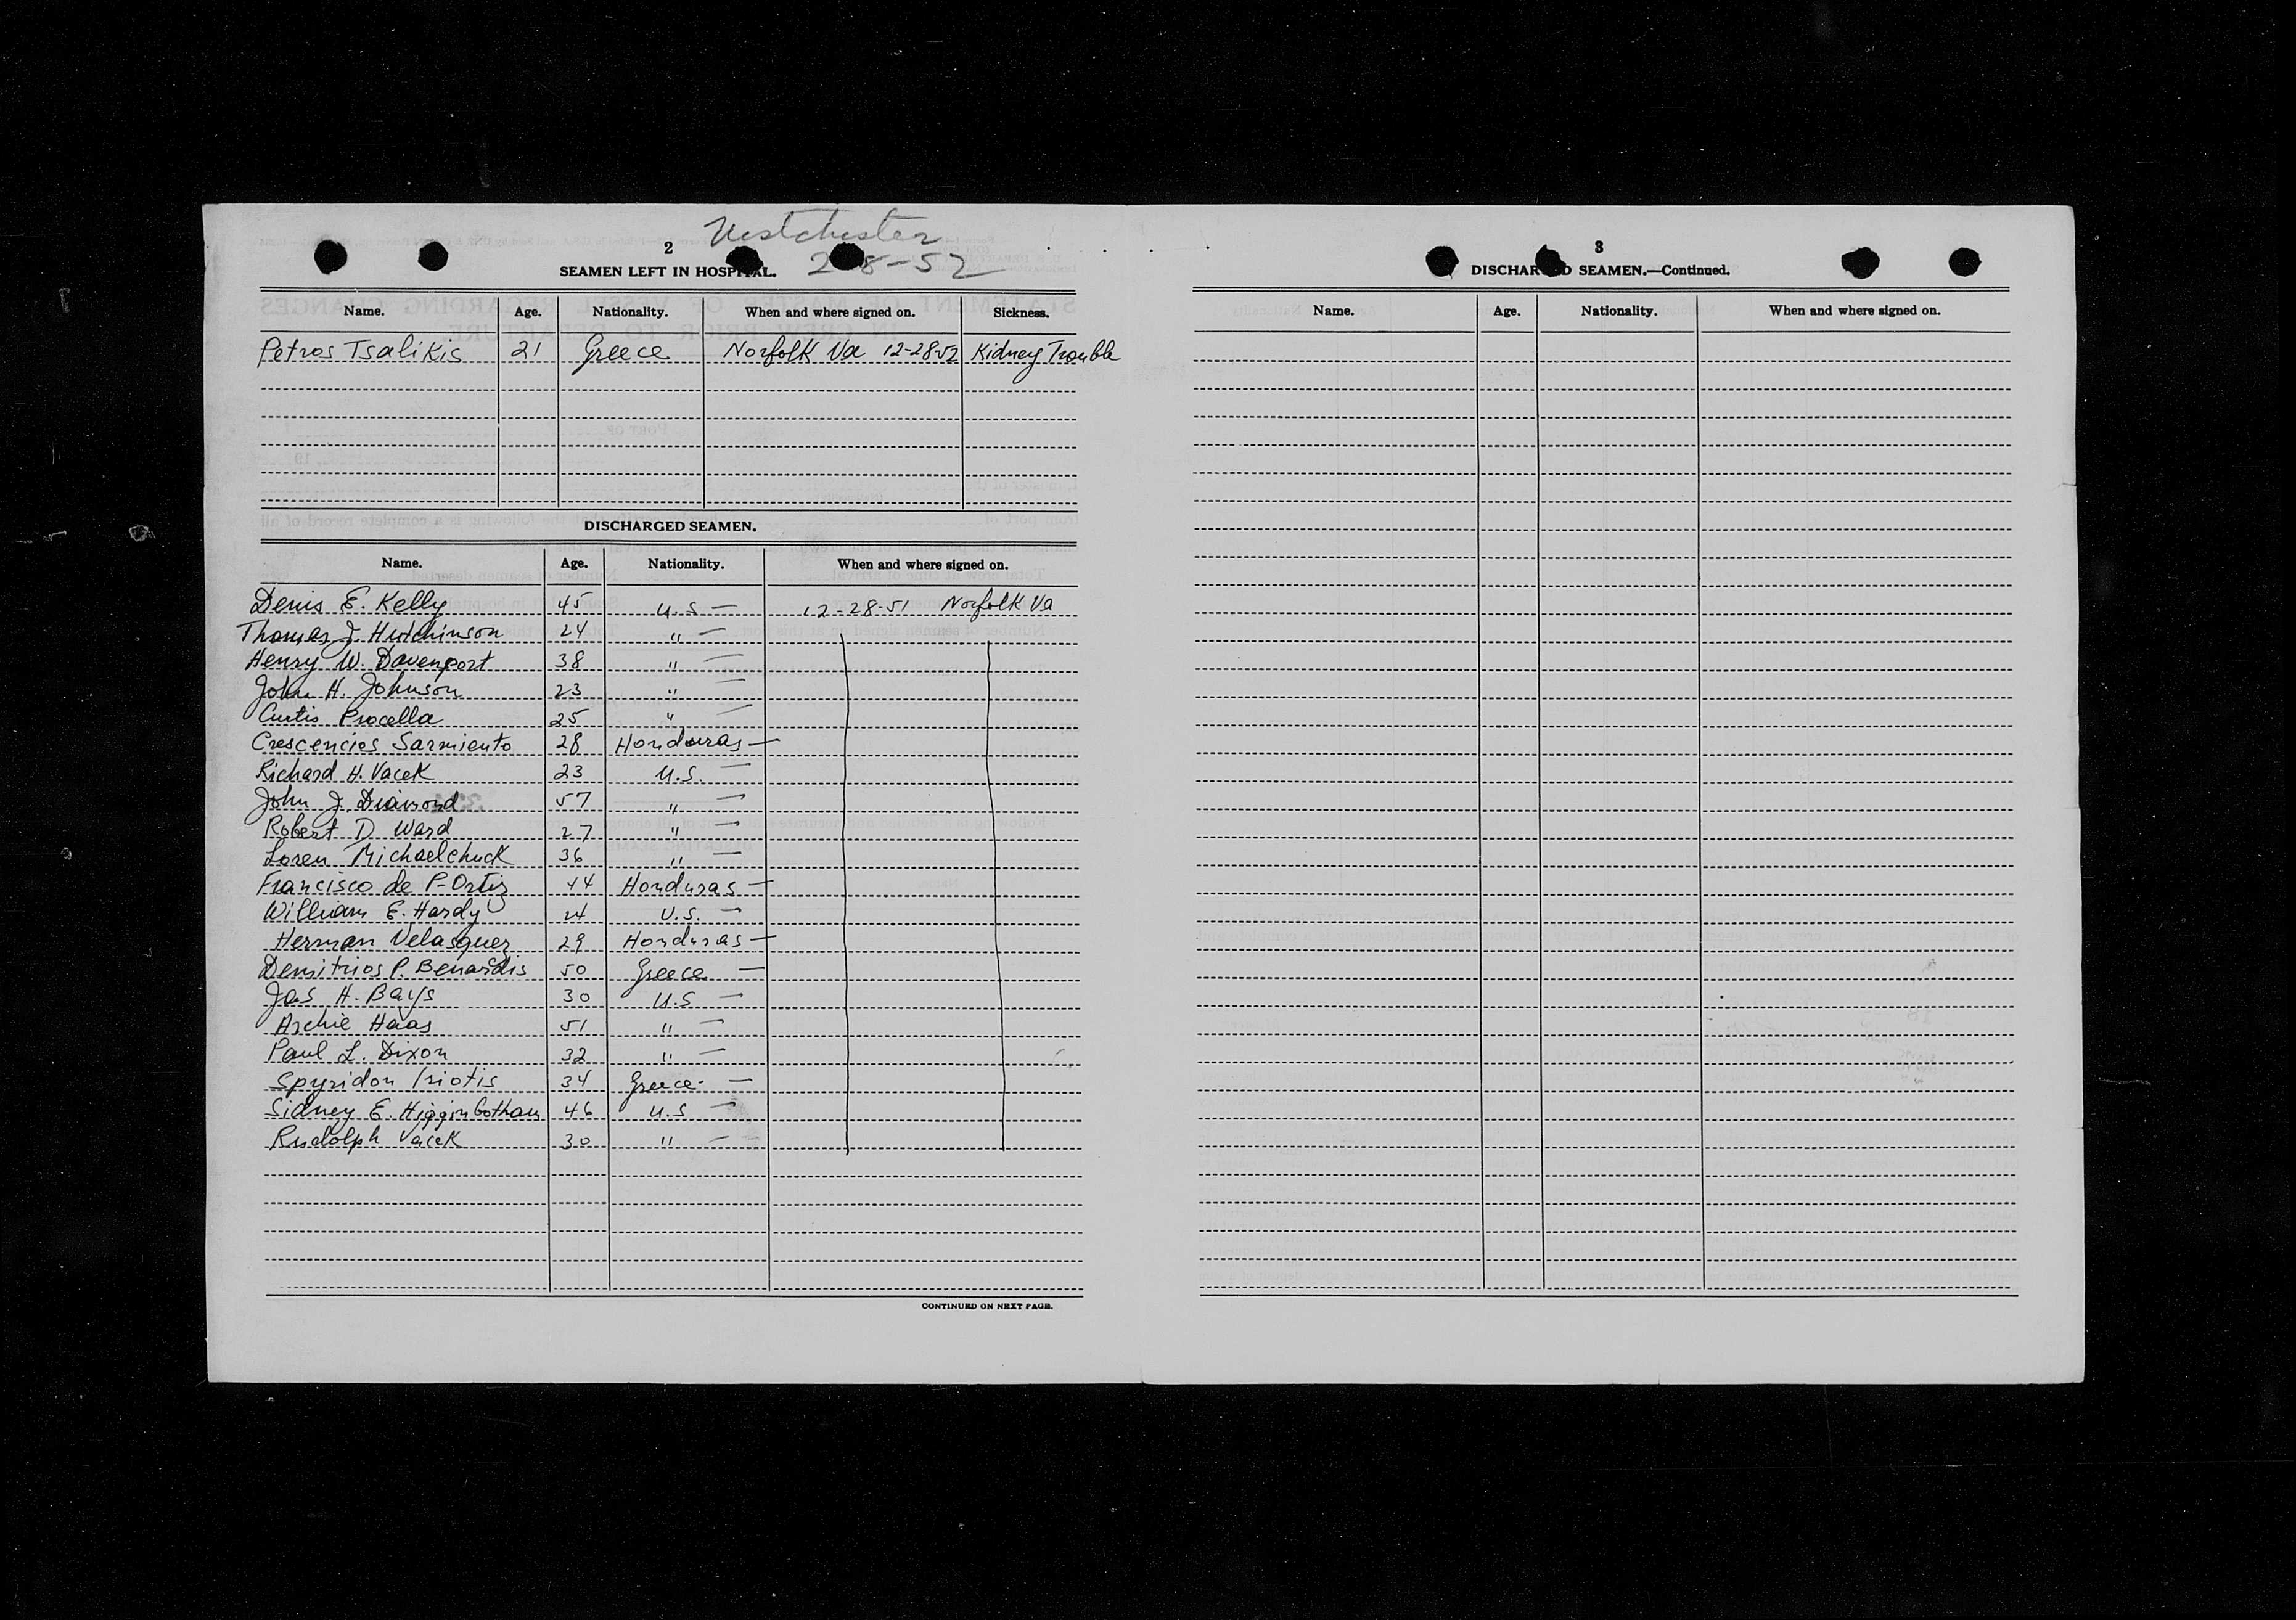 Westchester
2
2-8-52
SEAMEN LEFT IN HOSPITAL.
Name. Age. Nationality. When and where signed on. Sickness.
Petros Tsalikis 21 Greece Norfolk Va 12-28-52 Kidney Trouble
DISCHARGED SEAMEN.
Name. Age. Nationality. When and where signed on.
Denis E. Kelly 45 U.S — 12-28-51 Norfolk Va
Thomas J. Hutchinson 24 " —
Henry W. Davenport 38 " —
John H. Johnson 23 " —
Curtis Procella 25 " —
Crescencios Sarmiento 28 Honduras —
Richard H. Vacek 23 U.S. —
John J Diamond 57 " —
Robert D Ward 27 " —
Loren Michaelchuck 36 " —
Francisco de P-Ortiz 44 Honduras —
William E. Hardy 24 U.S. —
Herman Velasquez 29 Honduras —
Demitrios P. Benardis 50 Greece —
Jas H. Bays 30 U.S —
Archie Haas 51 " —
Paul L. Dixon 32 " —
Spyridon Iriotis 34 Greece —
Sidney E. Higginbotham 46 U.S —
Rudolph Vacek 30 " —
CONTINUED ON NEXT PAGE.
3
DISCHARGED SEAMEN.—Continued.
Name. Age. Nationality. When and where signed on.